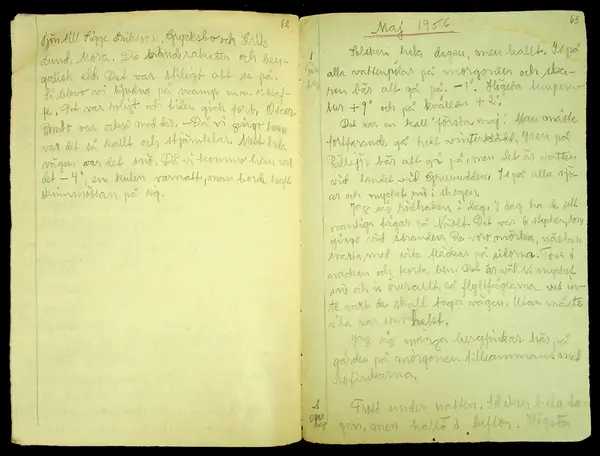 62
sjön till Sigge Erikson, Grycksbo och Erik
Lund, Mora. De
eld. Det var stiligt att se på.
Så blevo vi bjudna på svamp m.m. o. kaf-
fe. Det var roligt och tiden gick fort. Oscar
var också med där. - Då vi gingo hem
var det så kallt och stjärnklar. Natt hela
vägen var det snö. Då vi kommo hem var
det -4°, en kulen vårnatt, man borde haft
på sig.
63
Maj 1956
1
Solsken hela dagen, men kallt. Is på
alla vattenpölar på morgonen och ska-
ren bär att gå på. -1°. Högsta tempera-
tur +9° och på kvällen +2°.
Det var en kall "första maj". Man måste
fortfarande gå helt vinterklädd. Isen på
bär att gå på, men det är vatten
vid landet vid Is på alla sjö-
ar och mycket snö i skogen.
Jag såg rödhaken i dag. I dag ha de sett
ovanliga fåglar på Det var 6 stycken, som
gingo vid stranden. De voro mörka, nästan
svarta, med vita fläckar på sidorna. Tovs i
nacken och korta ben. Det är väl så mycket
snö och is överallt, så flyttfåglarna vet in-
te vart de skall taga vägen. Utan måste
vila var som helst.
Jag såg många bergfinkar här på
gården på morgonen tillsammans med
bofinkarna.
2
Frost under natten. Solsken hela da-
gen, men kallt i luften. Högsta